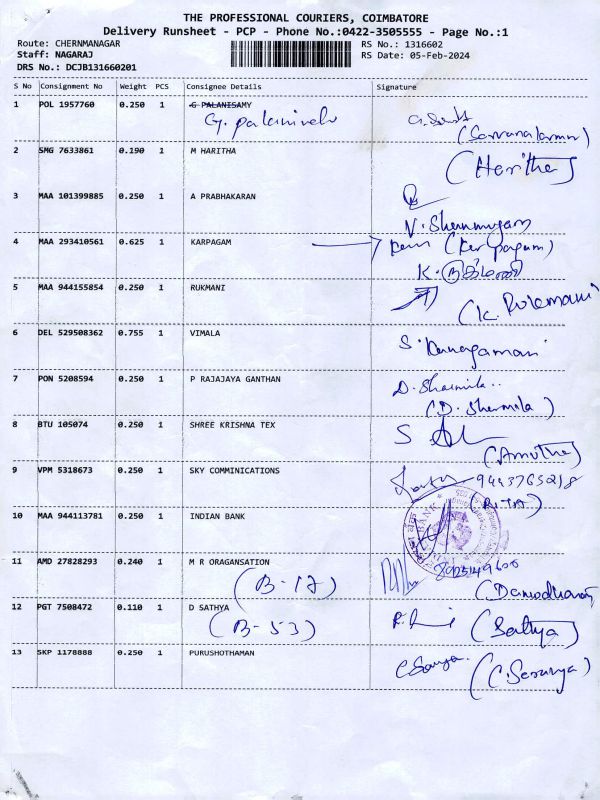 THE PROFESSIONAL COURIERS, COIMBATORE
Delivery Runsheet - PCP - Phone No.:0422-3505555 - Page No.:1
Route: CHERNMANAGAR RS No.: 1316602
Staff: NAGARAJ RS Date: 05-Feb-2024
DRS No.: DCJB131660201
S No Consignment No Weight PCS Consignee Details Signature
1 POL 1957760 0.250 1 G PALANISAMY
G. palanivelu
2 SMG 7633861 0.190 1 M HARITHA
(Haritha)
3 MAA 101399885 0.250 1 A PRABHAKARAN
V. Shanmugam
4 MAA 293410561 0.625 1 KARPAGAM
(Karpagam)
5 MAA 944155854 0.250 1 RUKMANI
(K. Rukmani)
6 DEL 529508362 0.755 1 VIMALA
S. Kanagamani
7 PON 5208594 0.250 1 P RAJAJAYA GANTHAN
D. Sharmila
(D. Sharmila)
8 BTU 105074 0.250 1 SHREE KRISHNA TEX
(Amutha)
9 VPM 5318673 0.250 1 SKY COMMINICATIONS
(RITA)
10 MAA 944113781 0.250 1 INDIAN BANK
11 AMD 27828293 0.240 1 M R ORAGANSATION
(B-17)
(Damodharan)
12 PGT 7508472 0.110 1 D SATHYA
(B-53) (Sathya)
13 SKP 1178888 0.250 1 PURUSHOTHAMAN
(C. Saranya)